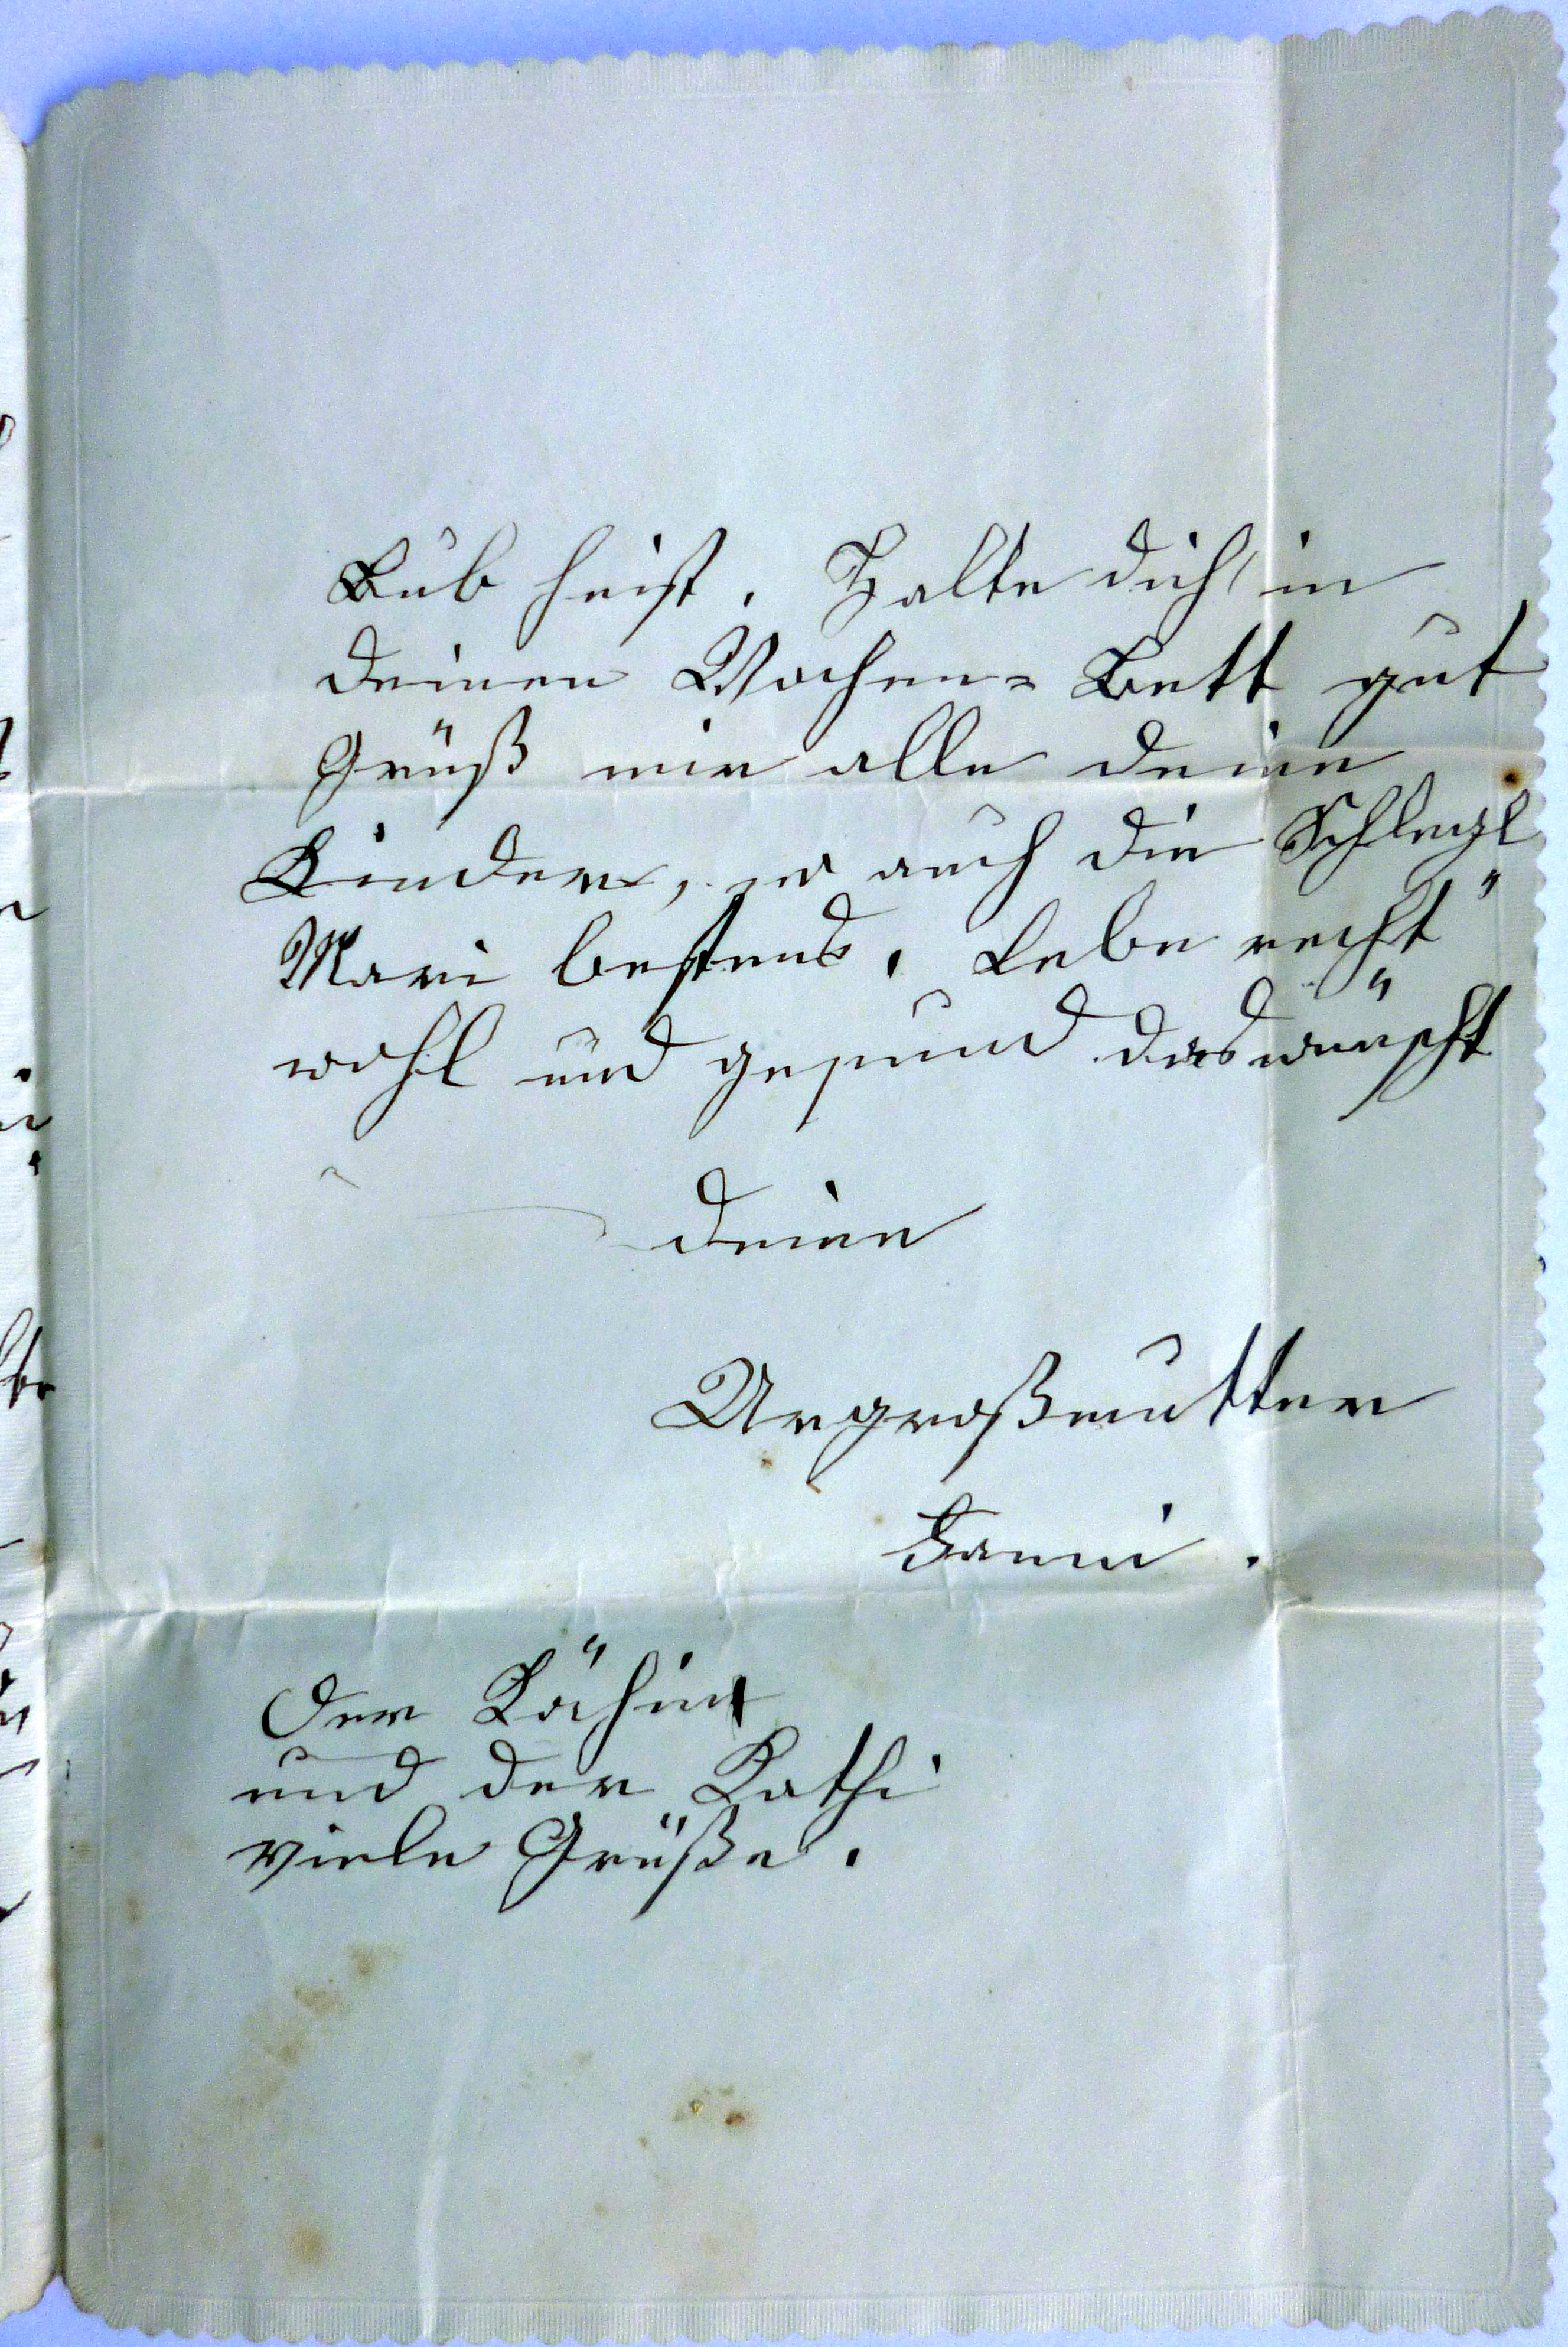 Bub heist. Halte dich in
deinen Wochen= Bett gut
Grüß mir alle deine
Kinder, auch die
Mari bestens. Lebe recht
wohl und gesund das wünscht
deine
Urgroßmutter
Fanni.
Der Köchin
und der Kathi
viele Grüße.